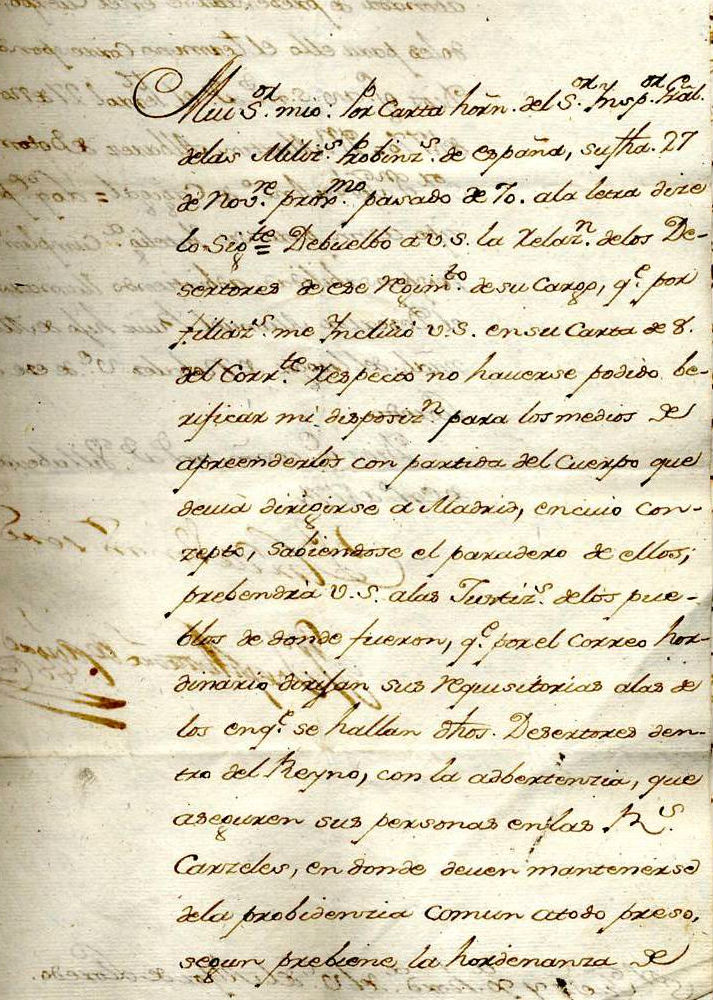 Mui S.or mio. Por Carta horñ. del S.or Ynsp.or G.ral
delas Miliz.s Probinz.s de españa, su fha. 27
de Nov.re prox.mo pasado de 70. ala letra dize
lo Sig.te = Debuelbo a V.S. la Relaz.n delos De-
sertores de ese Regim.to de su Cargo, q.e por
filiaz.s me Incluió V.S. en su Carta de 8.
del Corr.te Respecto no hauerse podido be-
rificar mi disposiz.n para los medios de
apreenderlos con partida del Cuerpo que
deuia dirigirse a Madrid, en cuio con-
zepto, sabiendose el paradero de ellos;
prebendrà V.S. alas Justiz.s delos pue-
blos de donde fueron, q.e por el Correo hor-
dinario dirijan sus requisitorias alas de
los enq.e se hallan dhos. Desertores den-
tro del Reyno, con la adbertenzia, que
aseguren sus personas en las R.s
Carzeles, en donde deuen mantenerse
dela probidenzia comun atodo preso,
segun prebiene la hordenanza de